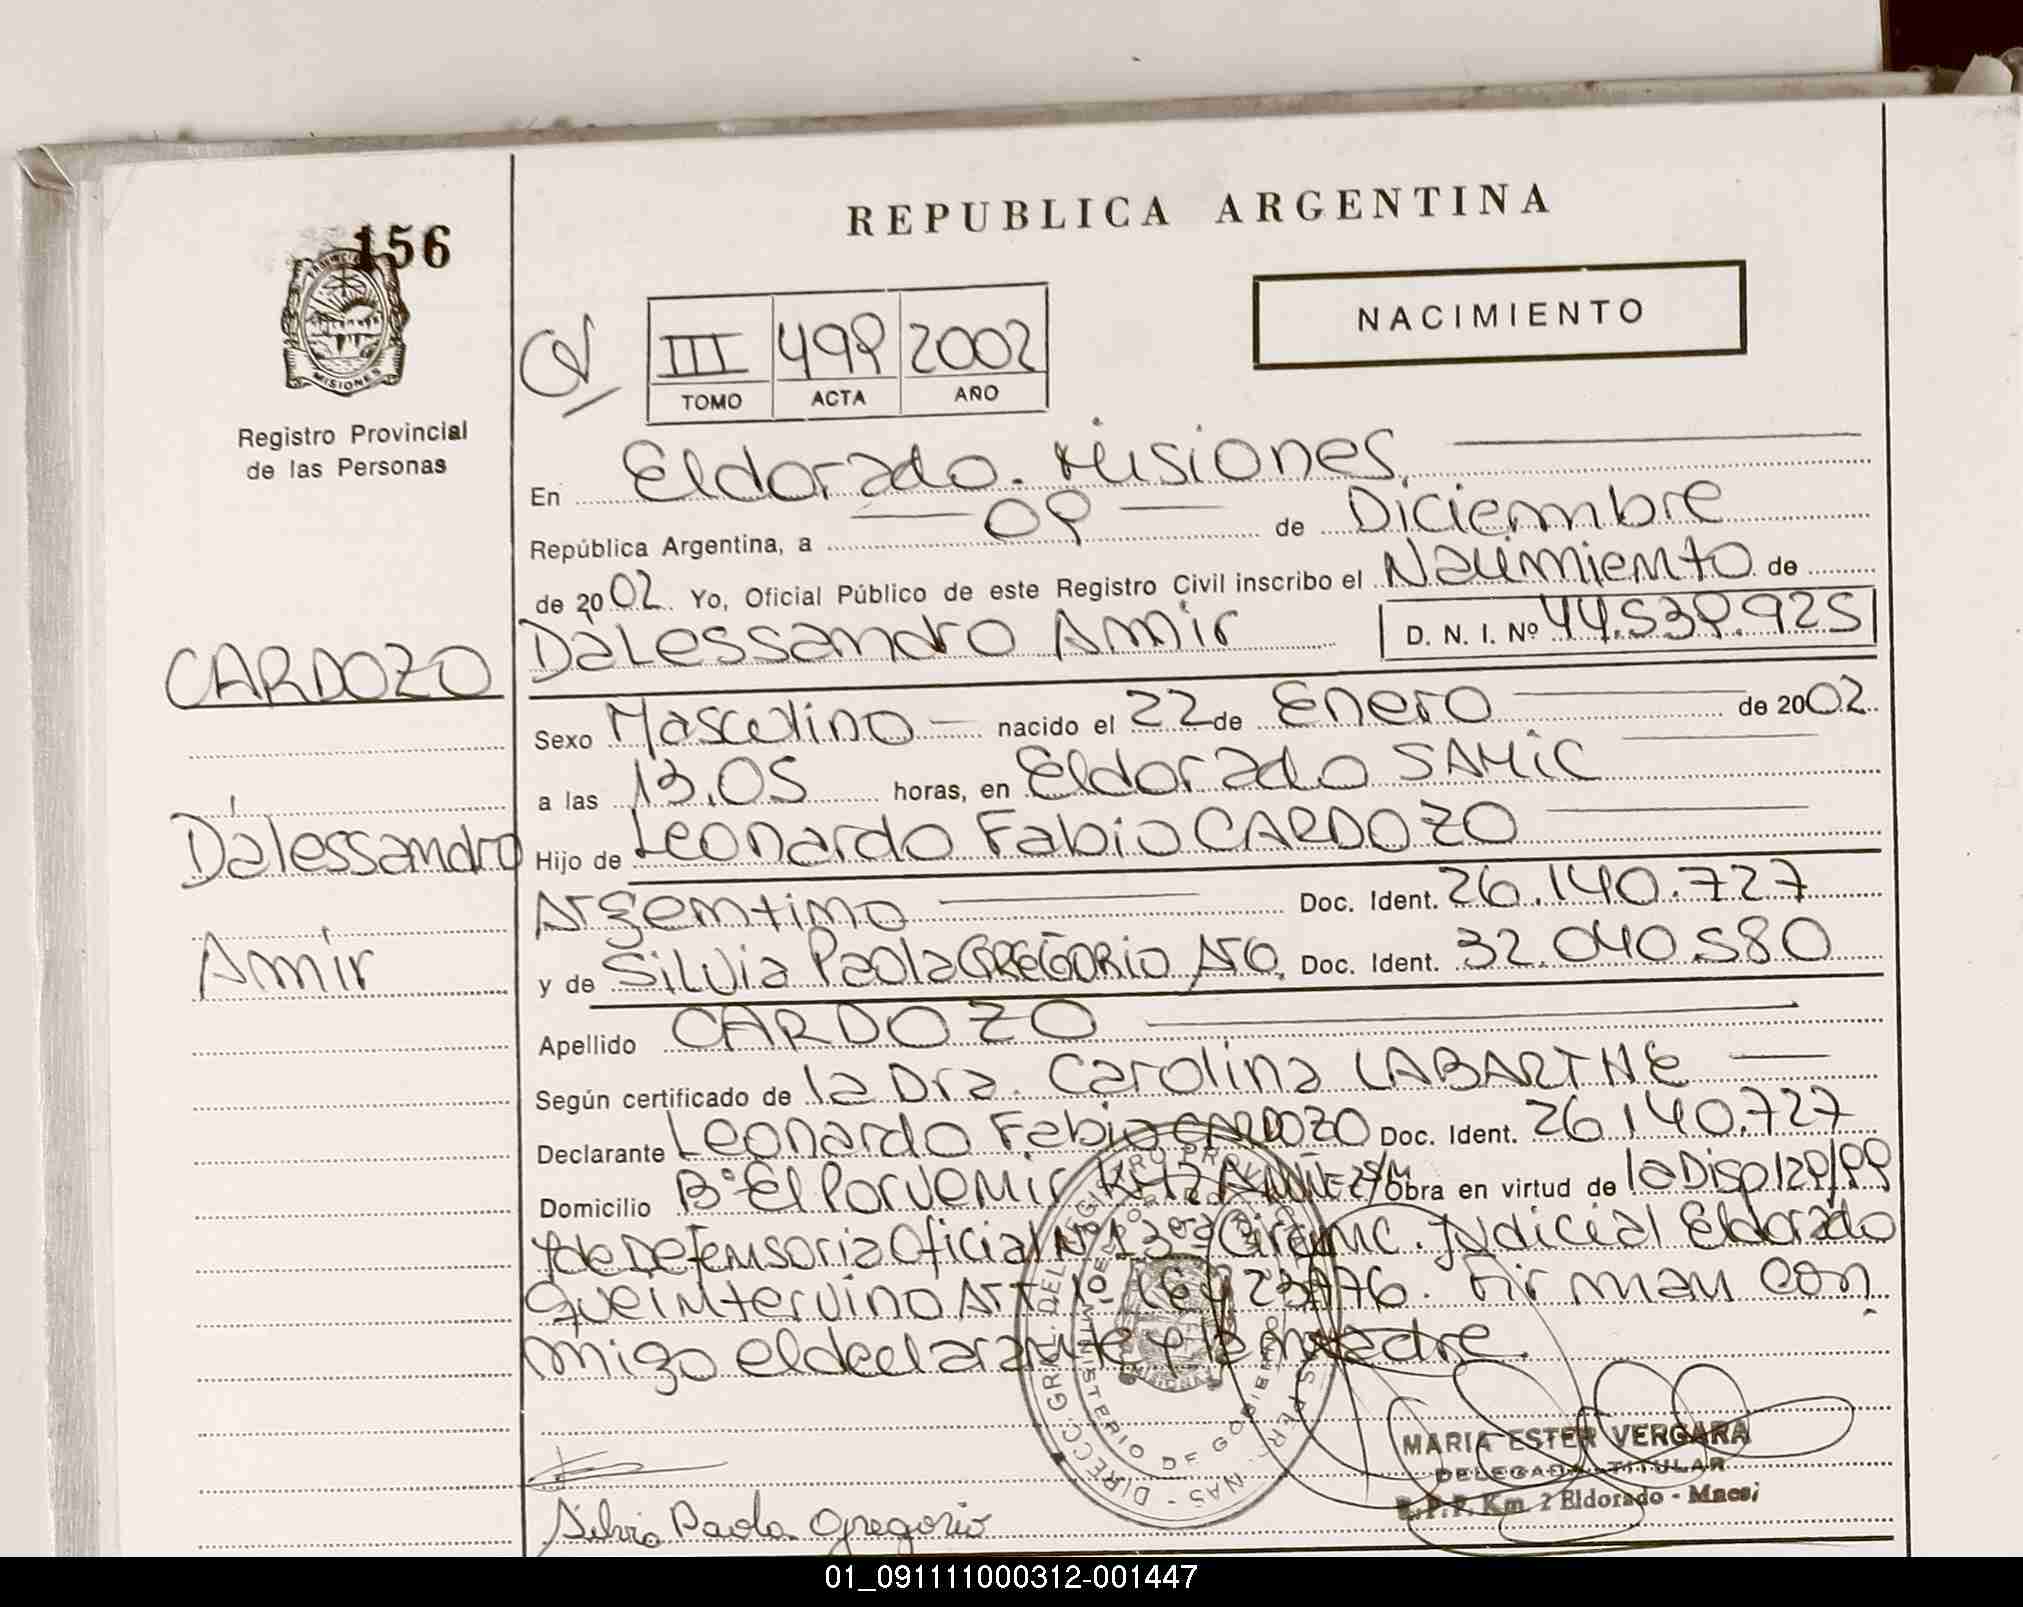 REPUBLICA ARGENTINA
156
NACIMIENTO
III 499 2002
TOMO ACTA AÑO
MISIONES
Registro Provincial
de las Personas
En Eldorado. Misiones
República Argentina, a 09 de Diciembre
de 2002. Yo, Oficial Público de este Registro Civil inscribo el Nacimiento de
CARDOZO
D'alessandro Amir D. N. I. Nº 44.539.925
Sexo Masculino nacido el 22 de Enero de 2002.
a las 13.05 horas, en Eldorado SAMIC
D'alessandro
Hijo de Leonardo Fabio CARDOZO
Argentino Doc. Ident. 26.140.727
Amir
y de Silvia Paola GREGORIO Doc. Ident. 32.040.580
Apellido CARDOZO
Según certificado de la Dra. Carolina LABARTHE
Declarante Leonardo Fabio CARDOZO Doc. Ident. 26.140.727
Domicilio Bº El Porvenir Km 2 Obra en virtud de la Disp 129/99
y de Defensoria Oficial Nº 1 3era Circunc. Judicial Eldorado
que intervino Art 1º Firman con
migo el declarante y la madre.
MARIA ESTER VERGARA
DELEGADA TITULAR
R.P.P. Km. 2 Eldorado - Mnes.
Silvia Paola Gregorio
01_091111000312-001447